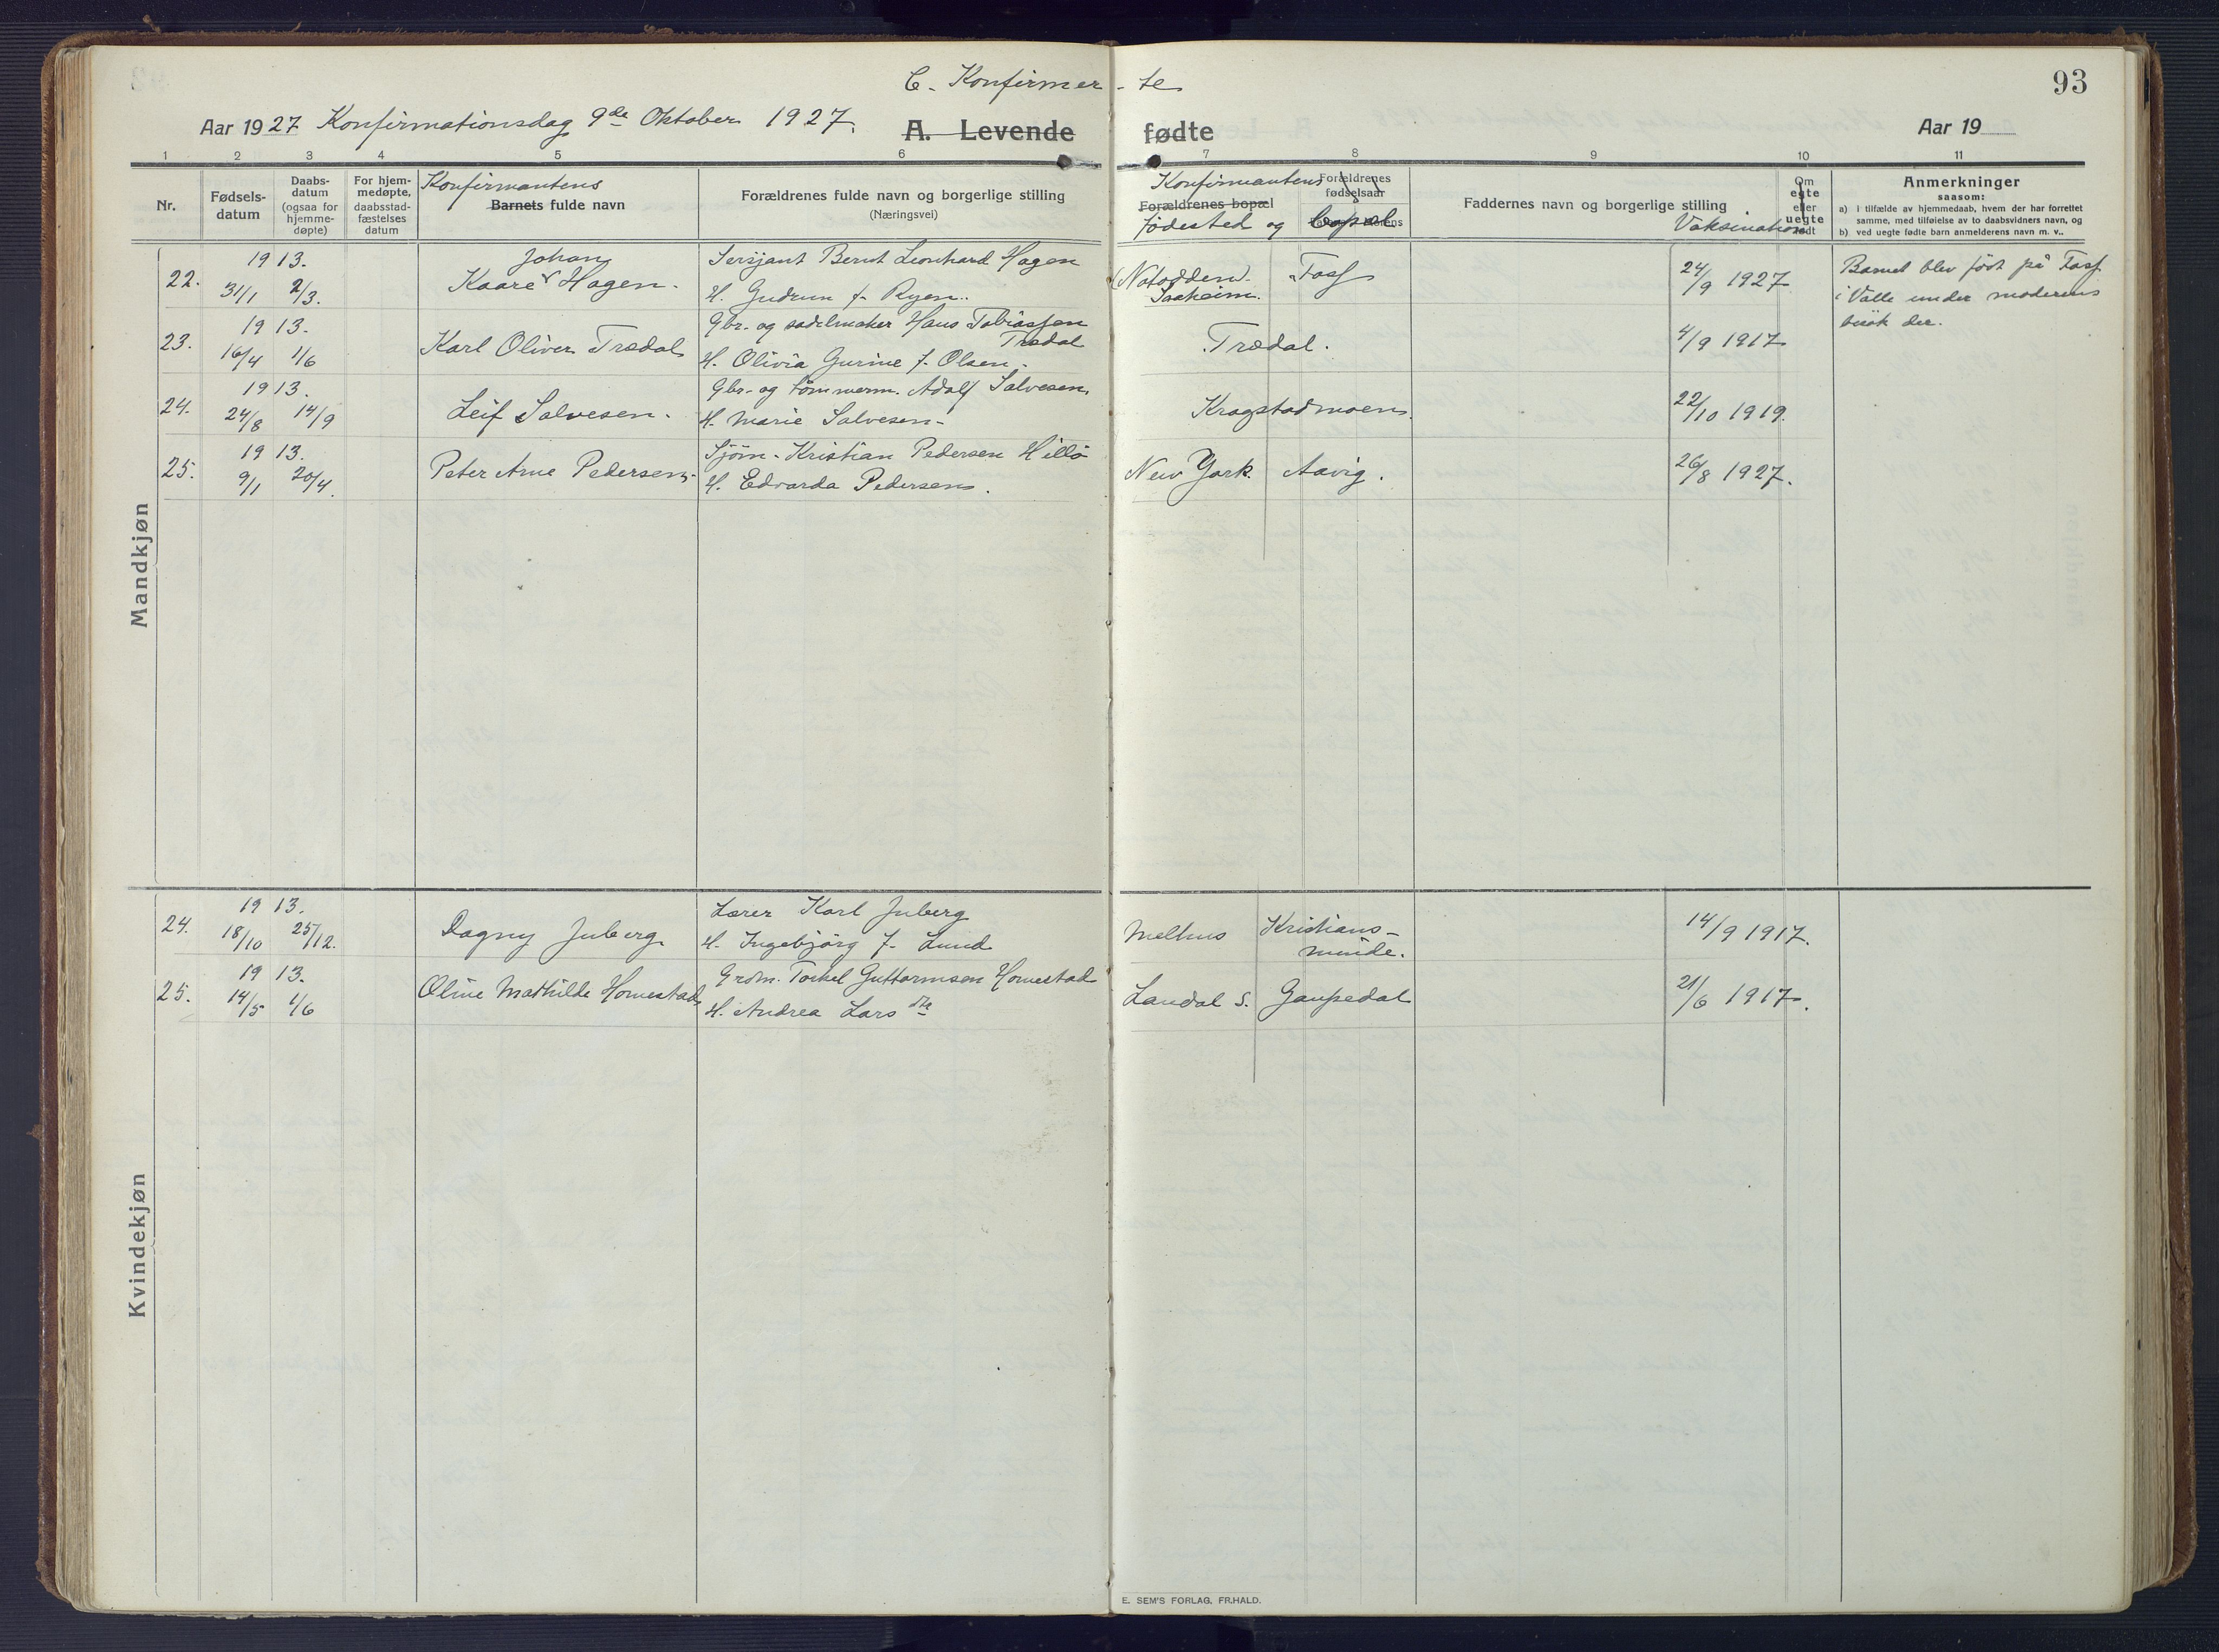 C. Konfirmer-te
93
Aar 1927 Konfirmationsdag 9de Oktober 1927.
A. Levende fødte
Aar 19
1 2 3 4 5 6 7 8 9 10 11
Nr.
Fødsels-
datum
Daabs-
datum
(ogsaa for
hjemme-
døpte)
For hjem-
medøpte,
daabsstad-
fæstelses
datum
Konfirmantens
Barnets fulde navn
Forældrenes fulde navn og borgerlige stilling
(Næringsvei)
Konfirmantens
Forældrenes bopæl
Fødested og bopæl
Forældrenes
fødselsaar
Faddernes navn og borgerlige stilling
Vaksination
Om
egte
eller
uegte
født
Anmerkninger
saasom:
a) i tilfælde av hjemmedaab, hvem der har forrettet
samme, med tilføielse av to daabsvidners navn, og
b) ved uegte fødte barn anmelderens navn m. v..
Mandkjøn
22.
1913.
31/1 2/3.
Johan
Kaare Hagen.
Sersjant Bernt Leonhard Hagen
H. Gudrun f. Ryen.
(Notodden).
Saaheim.
Foss
24/9 1927
Barnet blev født på Foss
i Valle under moderens
besøk der.
23.
1913.
16/4 1/6
Karl Oliver Trædal
Gbr. og sadelmaker Hans Tobiassen
Trædal
H. Olivia Gurine f. Olsen.
Trædal.
4/9 1917
24.
1913.
24/8 14/9
Leif Salvesen.
Gbr. og tømmerm. Adolf Salvesen.
H. Marie Salvesen.
Krogstadmoen.
22/10 1919.
25.
1913.
9/1 20/4.
Peter Arne Pedersen.
Sjøm. Kristian Pedersen Hillö
H. Edvarda Pedersen.
New York.
Aavig.
26/8 1927.
Kvindekjøn
24.
1913.
18/10 25/12.
Dagny Juberg
Lærer Karl Juberg
H. Ingebjörg f. Lund
Melhus
Kristians-
minde.
14/9 1917.
25.
1913.
14/5 1/6
Oline Mathilde Homestad
Grdm. Torkel Guttormsen Homestad
H. Andrea Lars dtr
Laudal s.
Gaupedal
21/6 1917.
E. SEM'S FORLAG, FR.HALD.